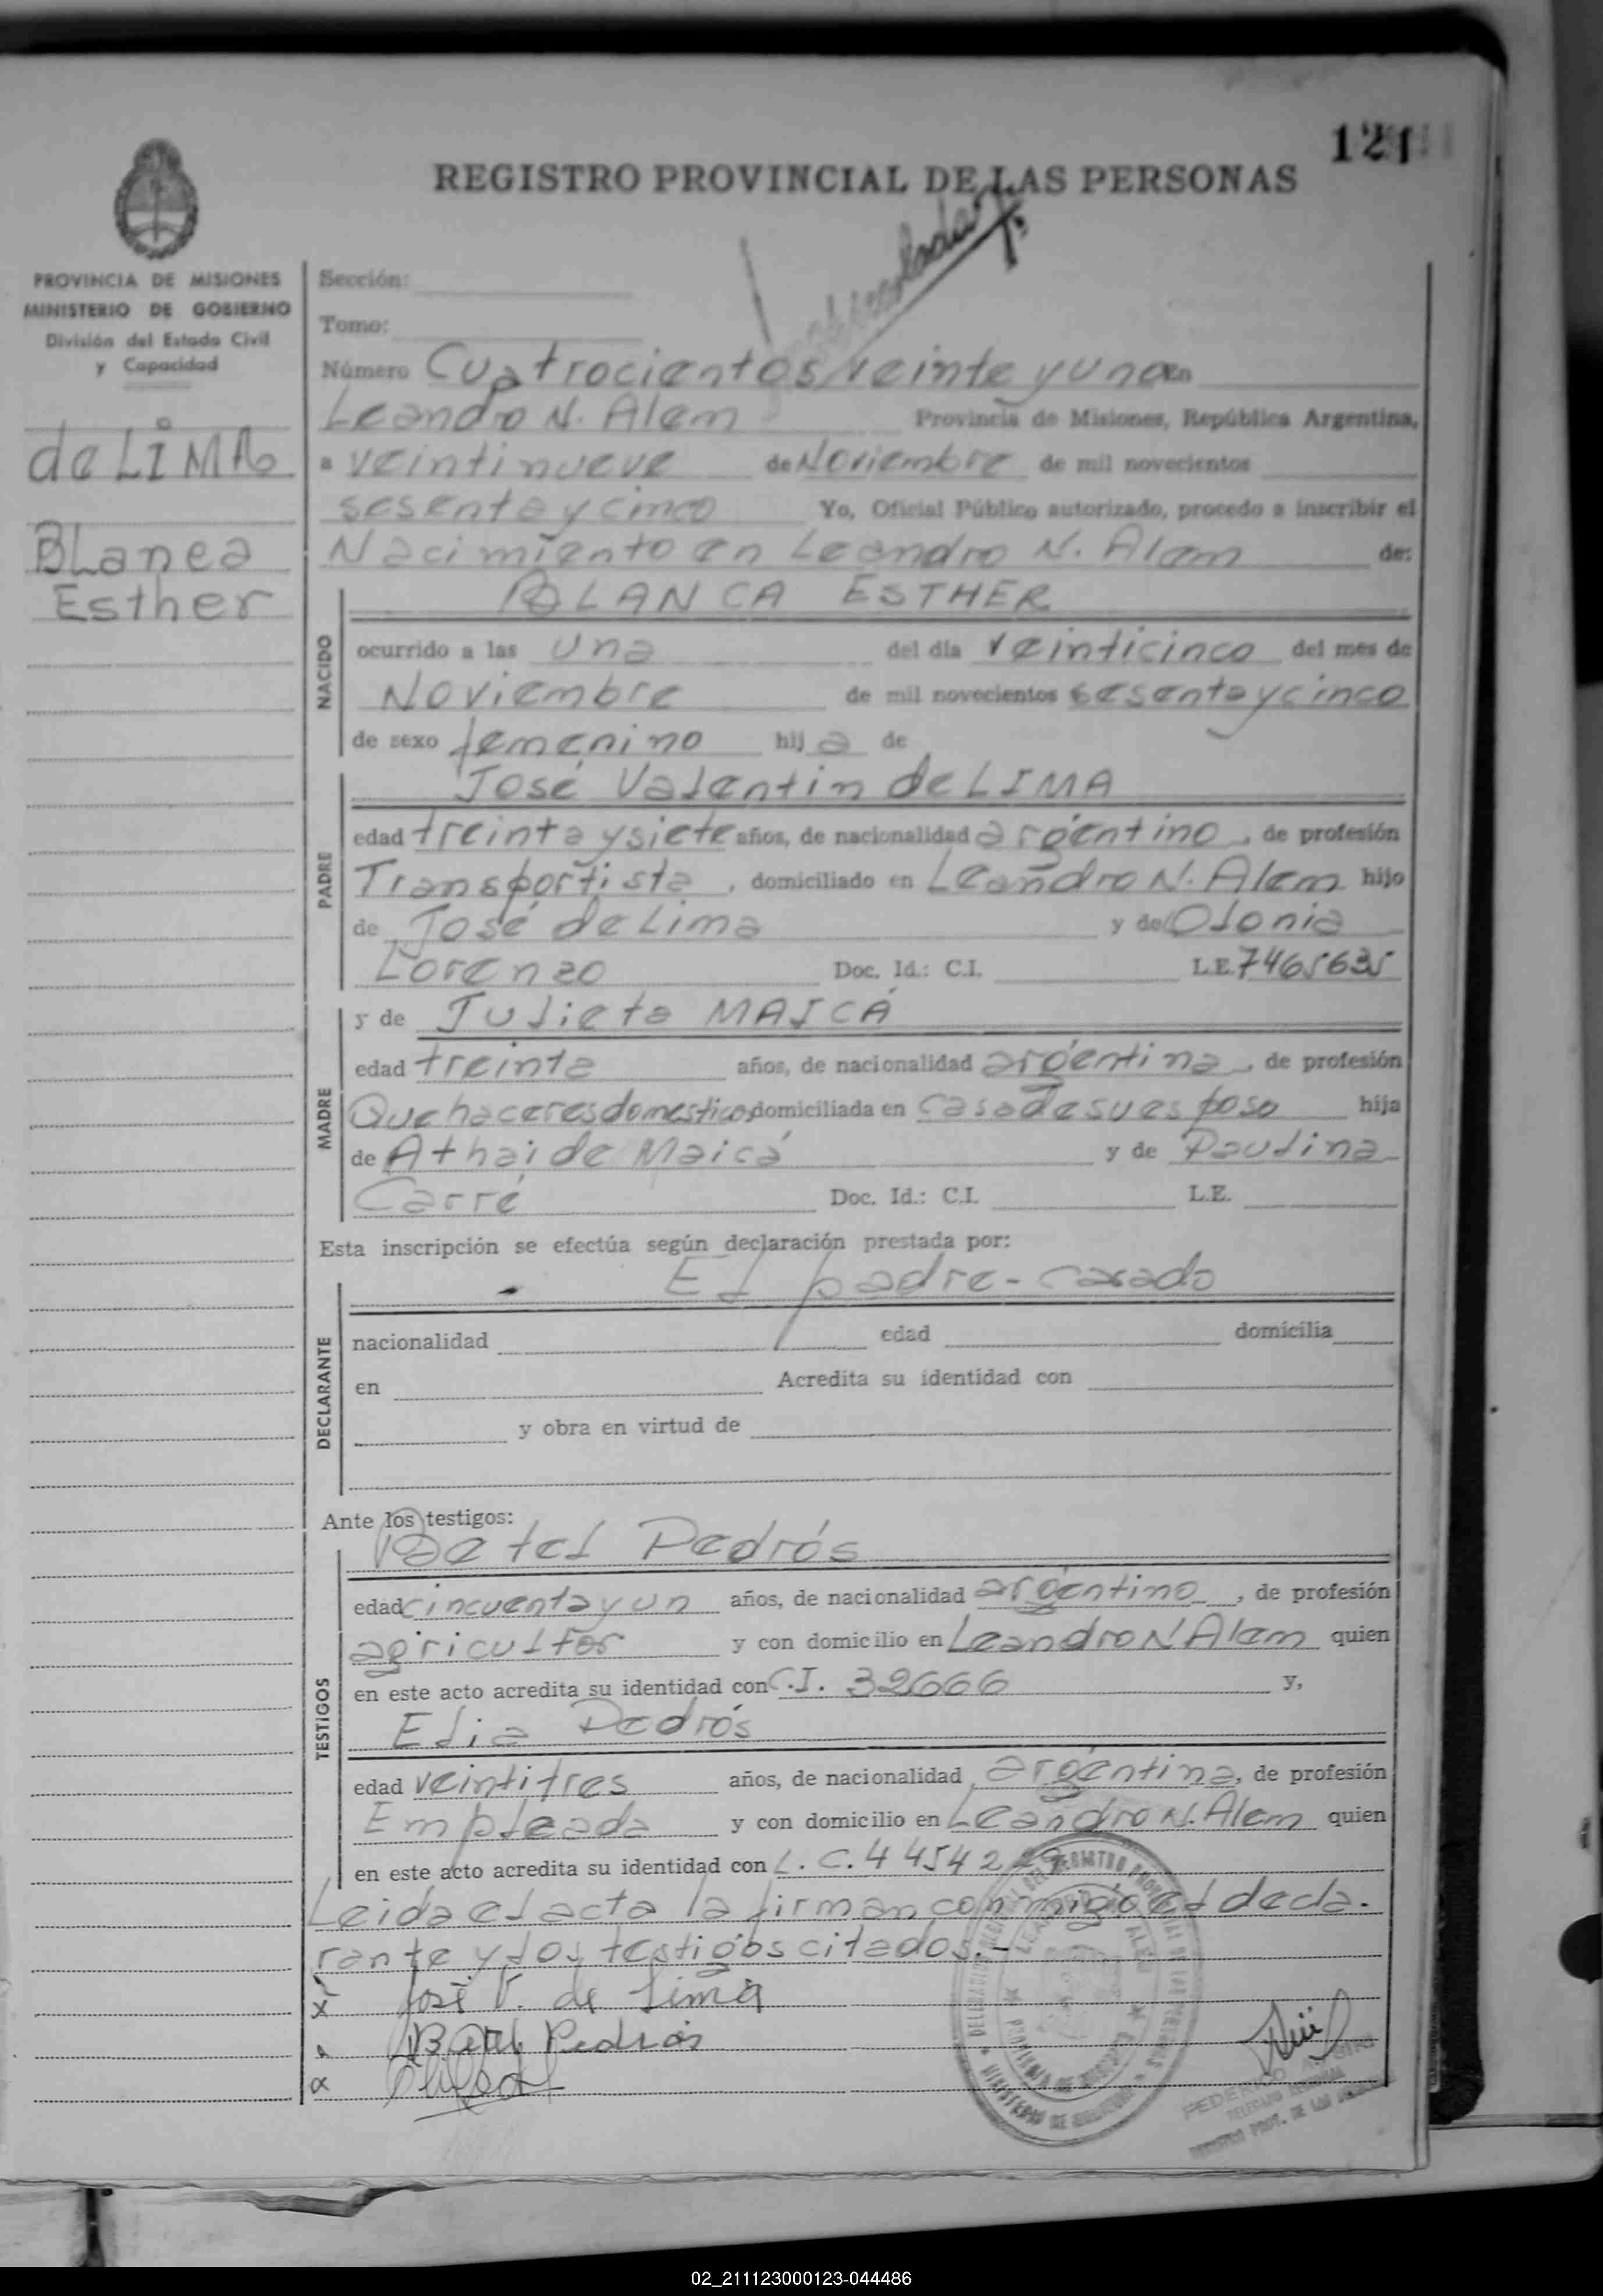 121
REGISTRO PROVINCIAL DE LAS PERSONAS
PROVINCIA DE MISIONES
MINISTERIO DE GOBIERNO
División del Estado Civil
y Capacidad
de LIMA
Blanca
Esther
Sección:
Tomo:
Número Cuatrocientos veinte y uno En
Leandro N. Alem Provincia de Misiones, República Argentina,
a veintinueve de Noviembre de mil novecientos
sesenta y cinco Yo, Oficial Público autorizado, procedo a inscribir el
Nacimiento en Leandro N. Alem de:
BLANCA ESTHER
NACIDO
ocurrido a las una del día veinticinco del mes de
Noviembre de mil novecientos sesenta y cinco
de sexo femenino hija de
José Valentin de LIMA
PADRE
edad treinta y siete años, de nacionalidad argentino, de profesión
Transportista, domiciliado en Leandro N. Alem hijo
de José de Lima y de Olonia
Lorenzo Doc. Id.: C.I. L.E. 7465635
y de Julieta MAICÁ
MADRE
edad treinta años, de nacionalidad argentina, de profesión
Quehaceres domesticos domiciliada en casa de su esposo hija
de Athaide Maicá y de Paulina
Carré Doc. Id.: C.I. L.E.
Esta inscripción se efectúa según declaración prestada por:
El padre - casado
DECLARANTE
nacionalidad edad domicilia
en Acredita su identidad con
y obra en virtud de
Ante los testigos:
Pedrós
TESTIGOS
edad cincuenta y un años, de nacionalidad argentino, de profesión
agricultor y con domicilio en Leandro N Alem quien
en este acto acredita su identidad con C.I. 32666 y,
Elia Pedrós
edad veintitres años, de nacionalidad argentina, de profesión
Empleada y con domicilio en Leandro N. Alem quien
en este acto acredita su identidad con L.C. 44542
Leida el acta la firman conmigo el decla-
rante y los testigos citados.-
x José V. de Lima
Pedrós
02_211123000123-044486